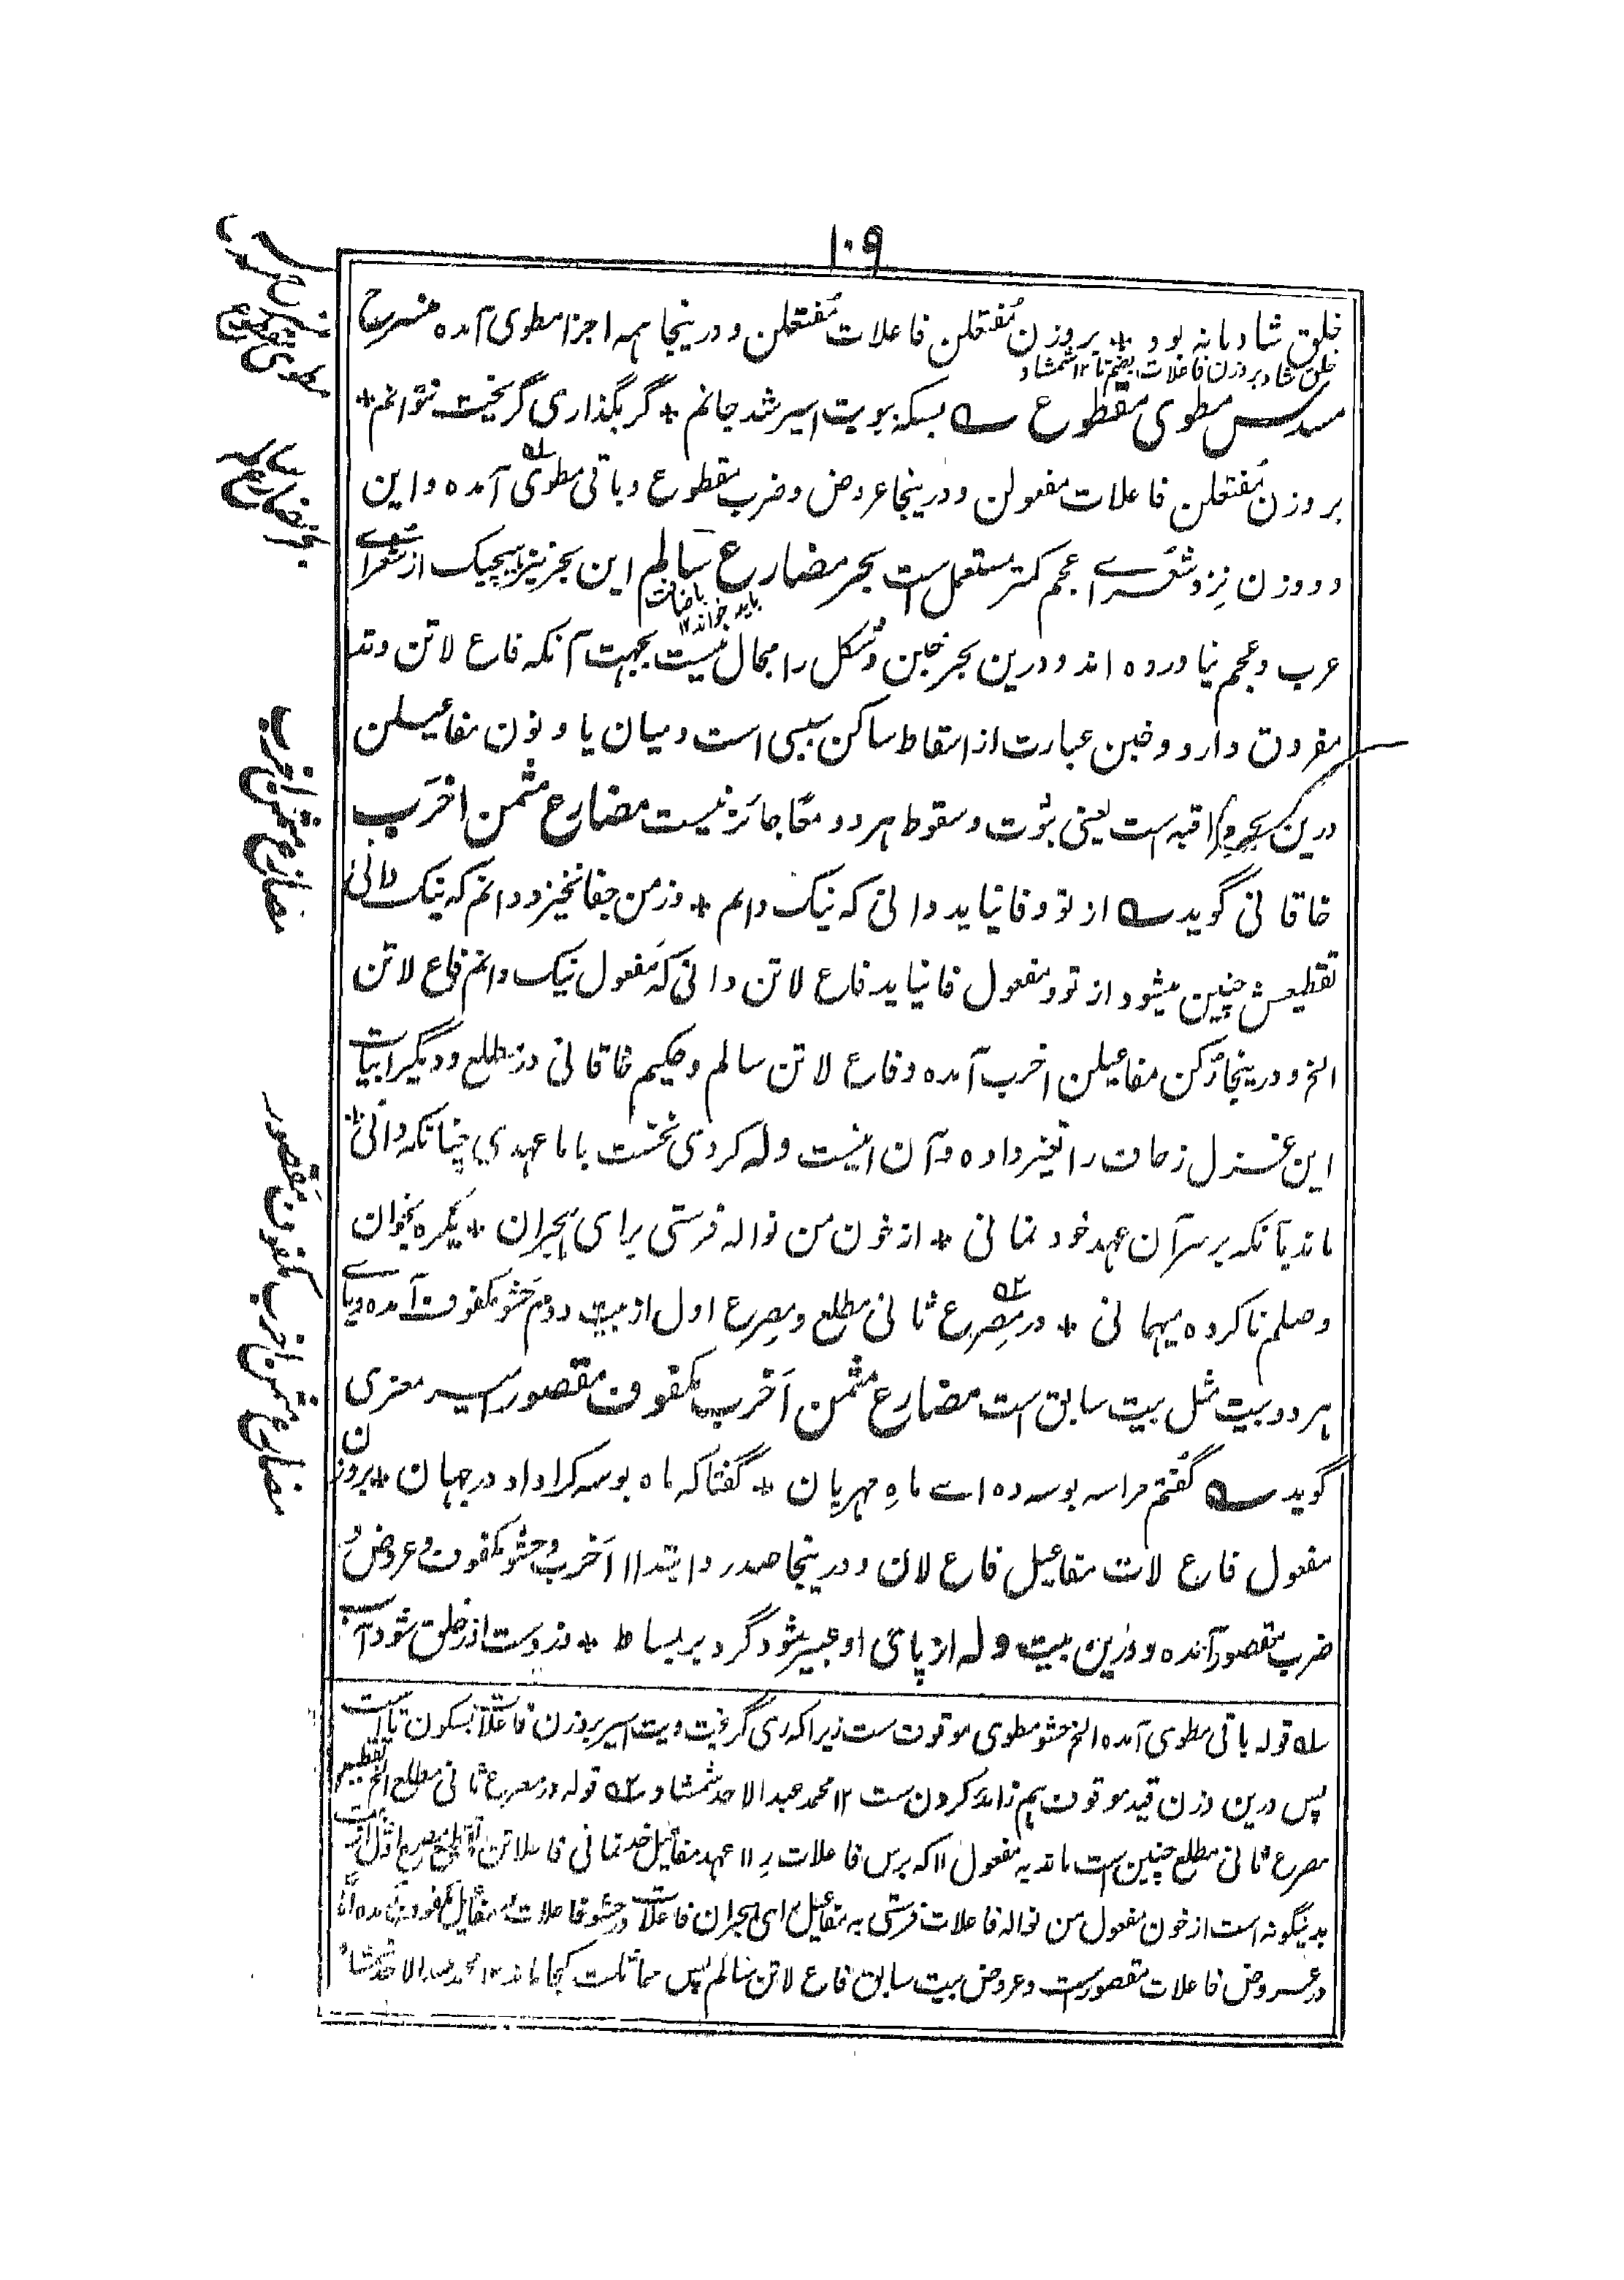 ۱۰۹
خلق شادمانه بود * بر وزن مُفتعلن فاعلات مُفتعلن و درینجا همه اجزا مطوی آمده منسرح
خلق شاد بروزن فاعلات بضم تا ۱۲ شمشاد
مسدس مطوی مقطوع ے بسکہ بویت اسیر شد جانم * گر بگذاری گریخت نتوانم *
بر وزن مُفتعلن فاعلات مفعولن و درینجا عروض و ضرب مقطوع و باقی مطوی آمده و این
دو وزن نزد شعرائے عجم کمتر مستعمل است بحر مضارع سالم این بحر نیز هیچیک از شعرائے
باضافت باید خواند ۱۲
عرب و عجم نیاورده اند و درین بحر خبن و شکل را مجال نیست بجهت آنکه فاع لاتن وتد
مفروق دارد و خبن عبارت از اسقاط ساکن سببی است و میان یا و نون مفاعیلن
درین بحر مراقبه است یعنی ثبوت و سقوط هر دو معًا جائز نیست مضارع مثمن اخرَب
خاقانی گوید ے از تو وفا نیاید دانی که نیک دانم * وز من جفا نخیزد دانم که نیک دانی
تقطیعش چنین میشود از تو و مفعول فا نیاید فاع لاتن دانی که مفعول نیک دانم فاع لاتن
الخ و درینجا رکن مفاعیلن اخرب آمده و فاع لاتن سالم و حکیم خاقانی در مطلع و دیگر ابیات
این غزل زحاف را تغیر داده و آن اینست وله کردی نخست با ما عهدی چنانکه دانی *
ماند بآنکه بر سر آن عهد خود نمانی * از خون من نواله فرستی برای هجران * یکره بخوان
وصلم ناکرده میهمانی * در مصرع ثانی مطلع و مصرع اول از بیت دوم حشو مکفوف آمده و بنائے
هر دو بیت مثل بیت سابق است مضارع مثمن اَخرب مکفوف مقصور امیر معزی
گوید ے گُفتم مرا سه بوسه ده اے ماهِ مهربان * گفتا که ماه بوسه کرا داد در جهان * بروزن
مفعول فاع لات مفاعیل فاع لان و درینجا صدر و ابتدا ۱۱ اَخرب و حشو مکفوف و عروض و
ضرب مقصور آمده و وزین بیت وله از پای او عبیر شود گرد بر بساط * وز دست او خلق شود آب
ے۱ قوله باقی مطوی آمده الخ حشو مطوی موقوف ست زیرا که ری گریخت و بیت اسیر بروزن فاعلات بسکون تا است
پس درین وزن قید موقوف هم زائد کردن ست ۱۲ محمد عبدالاحد شمشاد ے۲ قوله در مصرع ثانی مطلع الخ تقطیع
مصرع ثانی مطلع چنین است ماند به مفعول ۱۱ که برس فاعلات رِ ۱۱ عهد مفاعیل خد نمانی فاعلاتن و تقطیع مصرع اول بیت
بدینگونه است از خون مفعول من نواله فاعلات فرستی به مفاعیل رای هجران فاعلات و حشو فاعلات و مفاعیل مکفوف آمده اما
در عروض فاعلات مقصور ست و عروض بیت سابق فاع لاتن سالم پس مماثلت کجا ماند ۱۲ محمد عبدالاحد شمشاد
مضارع مثمن اخرب
مضارع مثمن اخرب مکفوف مقصور